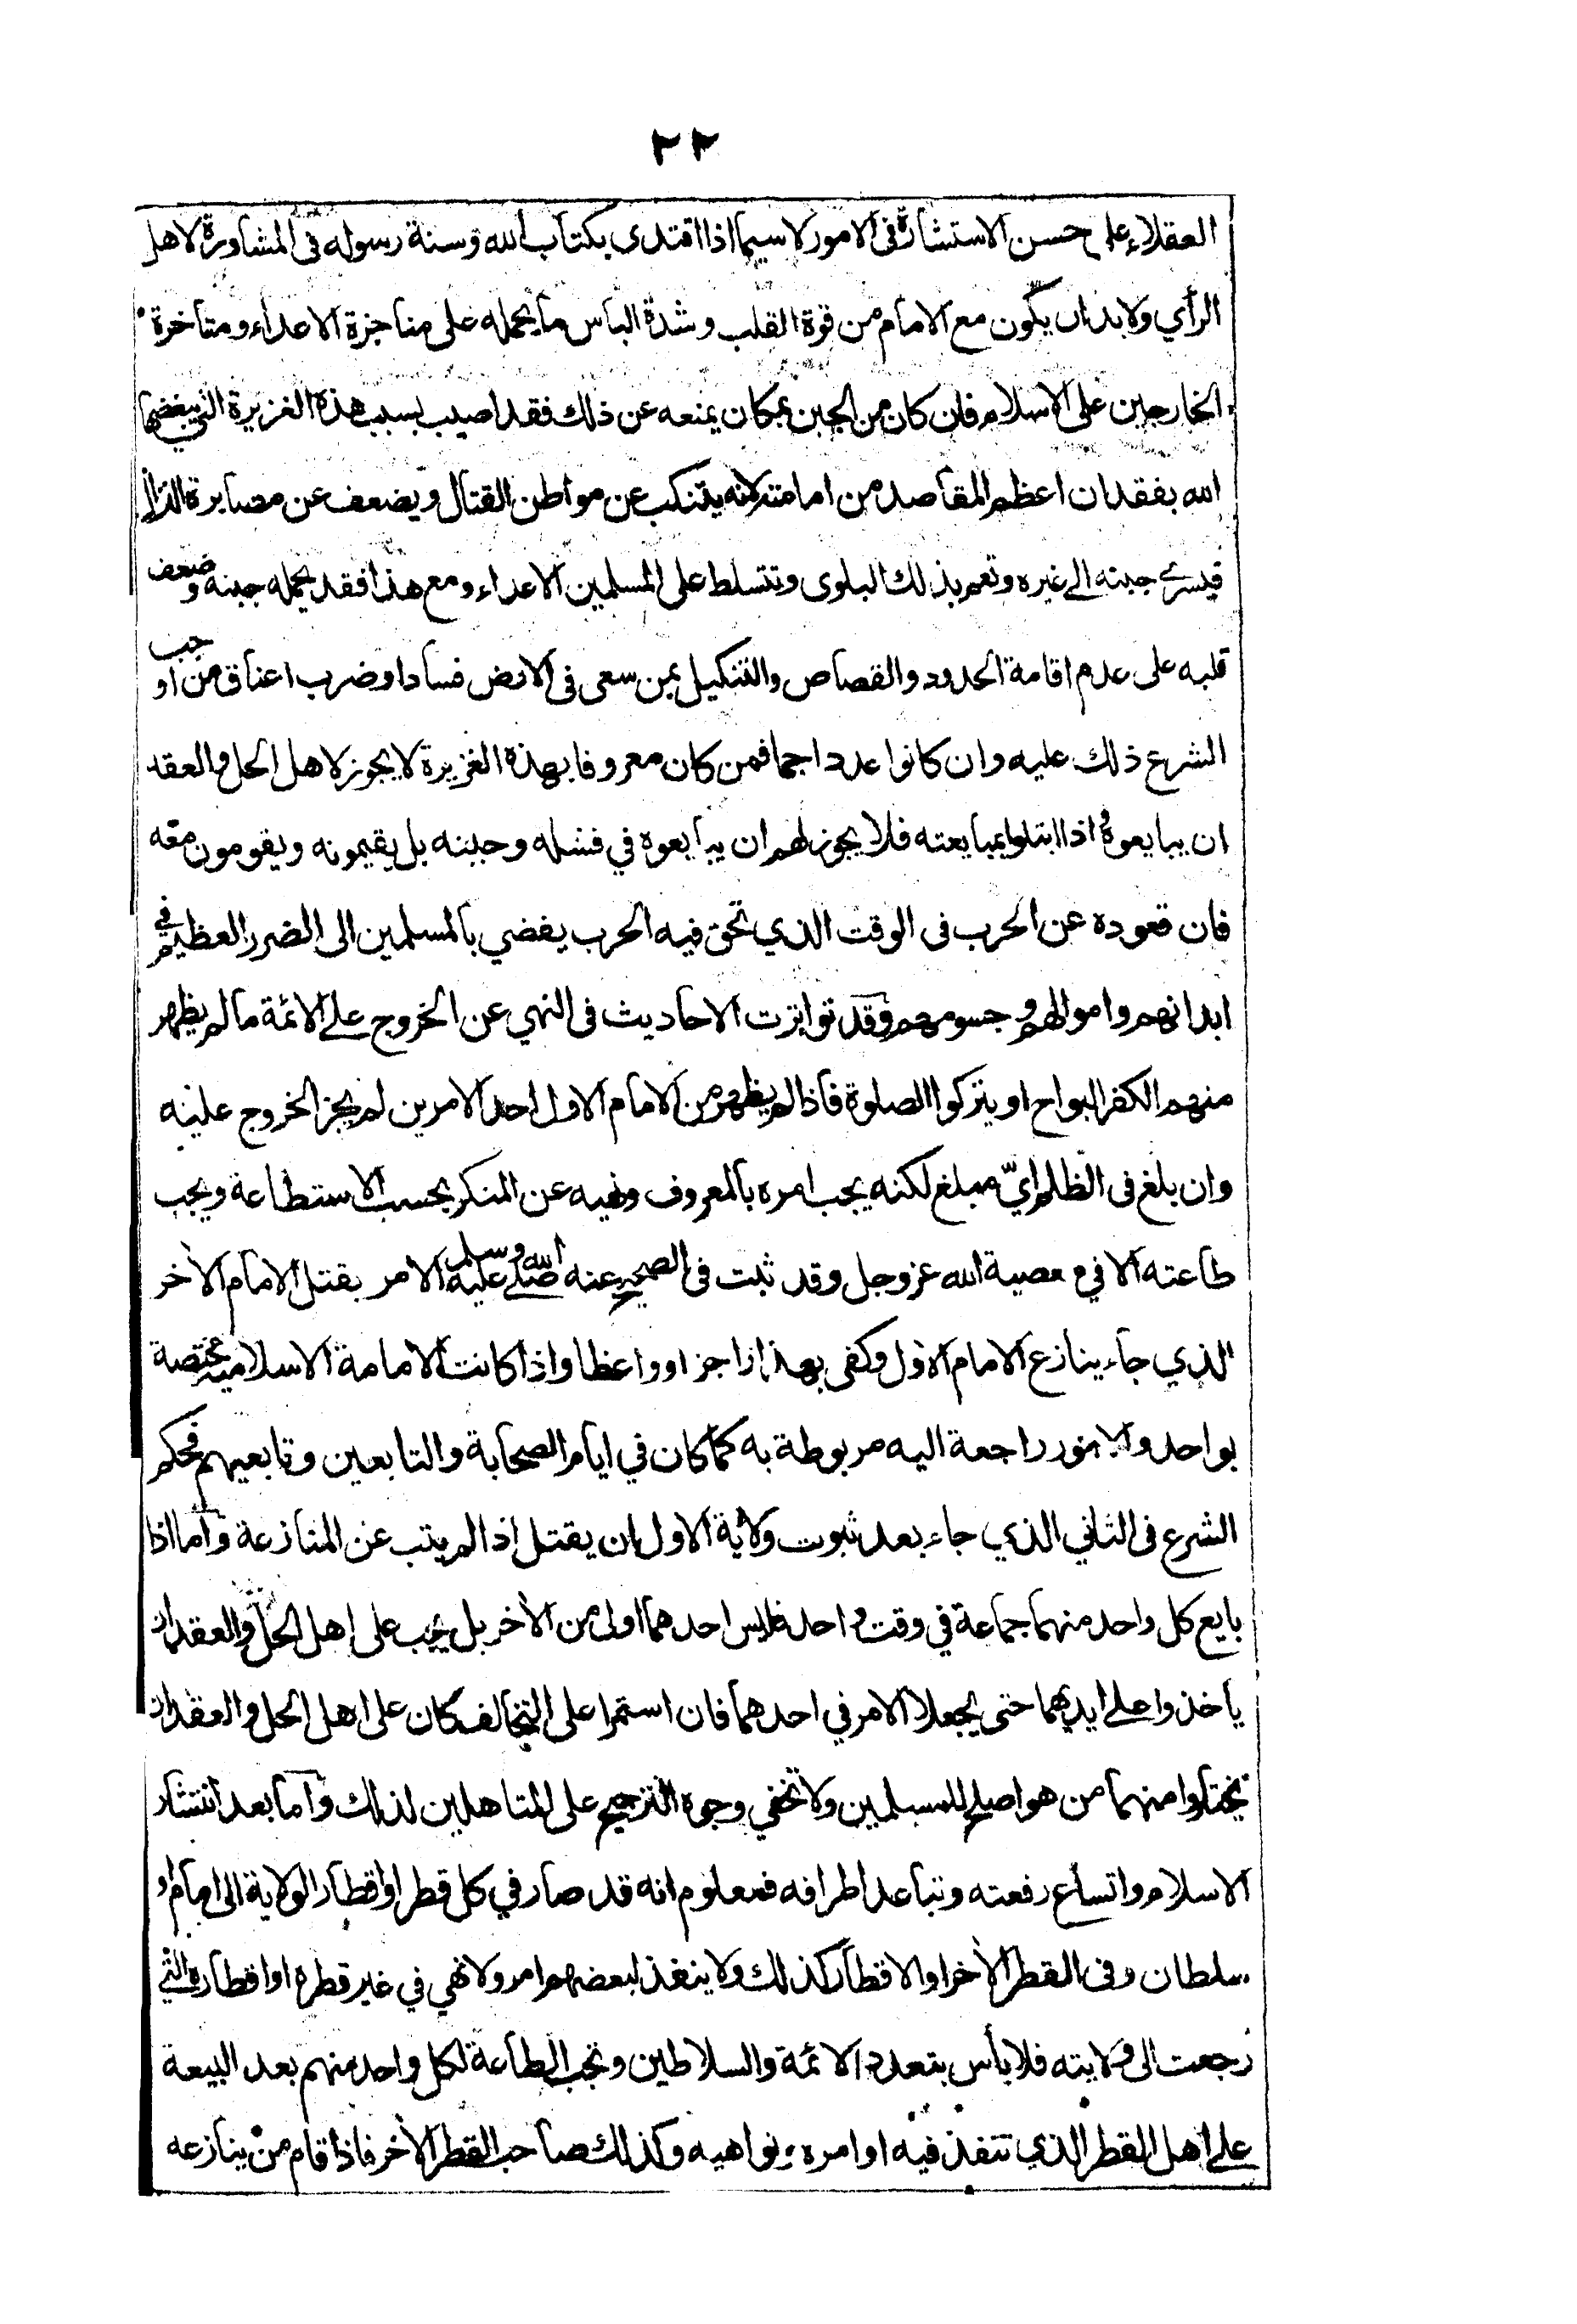 ٢٢
العقلاء على حسن الاستشارة فى الامور لاسيما اذا اقتدى بكتاب الله وسنة رسوله فى المشاورة لاهل
الرأي ولا بد ان يكون مع الامام من قوة القلب وشدة الباس ما يحمله على مناجزة الاعداء ومتاخرة
الخارجين على الاسلام فان كان من الجبن بمكان يمنعه عن ذلك فقد اصيب بسبب هذه الغزيرة التي يبغضها
الله بفقدان اعظم المقاصد من امامته لانه يتنكب عن مواطن القتال ويضعف عن مصابرة النزال
فيسرے جبنه الے غيره وتعم بذلك البلوى وتتسلط على المسلمين الاعداء ومع هذا فقد يحمله جبنه وضعف
قلبه على عدم اقامة الحدود والقصاص والتنكيل بمن سعى فى الارض فسادا وضرب اعناق من اوجب
الشرع ذلك عليه وان كانوا عددا جما فمن كان معروفا بهذه الغزيرة لا يجوز لاهل الحل والعقد
ان يبايعوه اذا ابتلوا بمبايعته فلا يجوز لهم ان يبايعوه في فشله وجبنه بل يقيمونه ويقومون معه
فان قعوده عن الحرب فى الوقت الذي تحق فيه الحرب يفضي بالمسلمين الى الضرر العظيم في
ابدانهم واموالهم وجسومهم وقد تواترت الاحاديث فى النهي عن الخروج علے الائمة ما لم يظهر
منهم الكفر البواح او يتركوا الصلوة فاذا لم يظهر من الامام الاول احد الامرين لم يجز الخروج عليه
وان بلغ فى الظلم ايّ مبلغ لكنه يجب امره بالمعروف ونهيه عن المنكر بحسب الاستطاعة ويجب
طاعته الا في معصية الله عز وجل وقد ثبت فى الصحيح عنه صلے الله عليه وسلم الامر بقتل الامام الآخر
الذي جاء ينازع الامام الاول وكفى بهذا زاجرا وواعظا واذا كانت الامامة الاسلامية مختصة
بواحد والامور راجعة اليه مربوطة به كما كان في ايام الصحابة والتابعين وتابعيهم فحكم
الشرع فى الثاني الذي جاء بعد ثبوت ولاية الاول ان يقتل اذا لم يتب عن المنازعة واما اذا
بايع كل واحد منهما جماعة في وقت واحد فليس احدهما اولى من الآخر بل يجب على اهل الحل والعقد ان
ياخذوا علے ايديهما حتى يجعلا الامر في احدهما فان استمرا على التخالف كان على اهل الحل والعقد ان
يختاروا منهما من هو اصلح للمسلمين ولا تخفي وجوه الترجيح على المتاهلين لذلك واما بعد انتشار
الاسلام واتساع رقعته وتباعد اطرافه فمعلوم انه قد صار في كل قطر او اقطار الولاية الى امام او
سلطان وفى القطر الآخر او الاقطار كذلك ولا ينفذ لبعضهم امر ولا نهي في غير قطره او اقطاره التي
رجعت الى ولايته فلا بأس بتعدد الائمة والسلاطين وتجب الطاعة لكل واحد منهم بعد البيعة
علے اهل القطر الذي تنفذ فيه اوامره ونواهيه وكذلك صاحب القطر الآخر فاذا قام من ينازعه